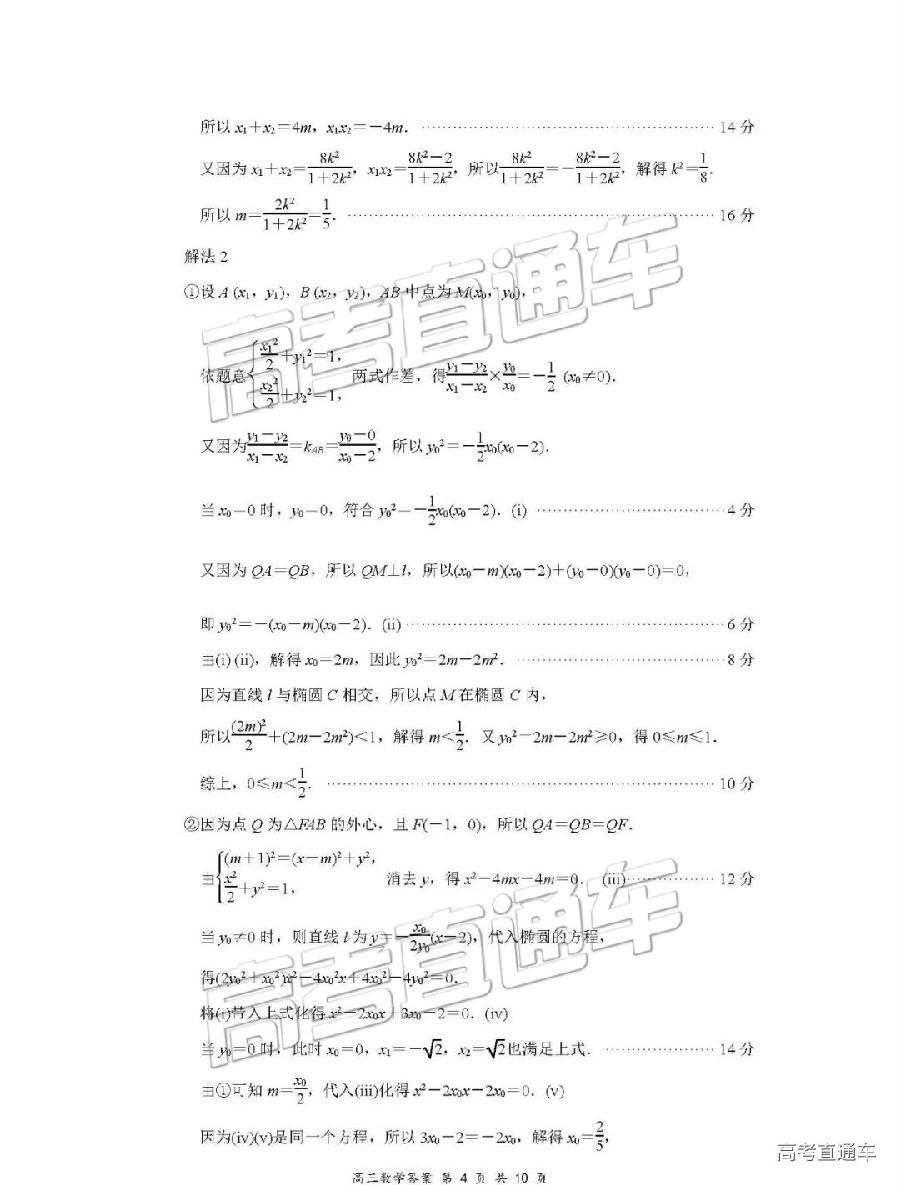 所以 x₁+x₂=4m，x₁x₂=-4m．……14 分
又因为 x₁+x₂=8k²/(1+2k²)，x₁x₂=(8k²-2)/(1+2k²)，所以 8k²/(1+2k²)=-(8k²-2)/(1+2k²)．解得 k²=1/8．
所以 m=2k²/(1+2k²)=1/5．……16 分
解法 2
①设 A (x₁，y₁)，B (x₂，y₂)，AB 中点为 M(x₀，y₀)，
依题意{x₁²/2+y₁²=1，x₂²/2+y₂²=1，两式作差，得(y₁-y₂)/(x₁-x₂)×y₀/x₀=-1/2 (x₀≠0)．
又因为(y₁-y₂)/(x₁-x₂)=k_AB=(y₀-0)/(x₀-2)，所以 y₀²=-1/2x₀(x₀-2)．
当 x₀=0 时，y₀=0，符合 y₀²=-1/2x₀(x₀-2)．(i) ……4 分
又因为 QA=QB，所以 QM⊥l，所以(x₀-m)(x₀-2)+(y₀-0)(y₀-0)=0，
即 y₀²=-(x₀-m)(x₀-2)．(ii) ……6 分
由(i) (ii)，解得 x₀=2m，因此 y₀²=2m-2m²．……8 分
因为直线 l 与椭圆 C 相交，所以点 M 在椭圆 C 内，
所以(2m)²/2+(2m-2m²)<1，解得 m<1/2．又 y₀²=2m-2m²≥0，得 0≤m≤1．
综上，0≤m<1/2．……10 分
②因为点 Q 为△FAB 的外心，且 F(-1，0)，所以 QA=QB=QF．
由{(m+1)²=(x-m)²+y²，x²/2+y²=1，消去 y，得 x²-4mx-4m=0．(iii)……12 分
当 y₀≠0 时，则直线 l 为 y=-x₀/2y₀(x-2)，代入椭圆的方程，
得(2y₀²+x₀²)x²-4x₀²x+4x₀²-4y₀²=0．
将(i)带入上式化得 x²-2x₀x+3x₀-2=0．(iv)
当 y₀=0 时，此时 x₀=0，x₁=-√2，x₂=√2也满足上式．……14 分
由①可知 m=x₀/2，代入(iii)化得 x²-2x₀x-2x₀=0．(v)
因为(iv)(v)是同一个方程，所以 3x₀-2=-2x₀，解得 x₀=2/5，
高三数学答案 第 4 页 共 10 页
高考直通车
高考直通车
高考直通车